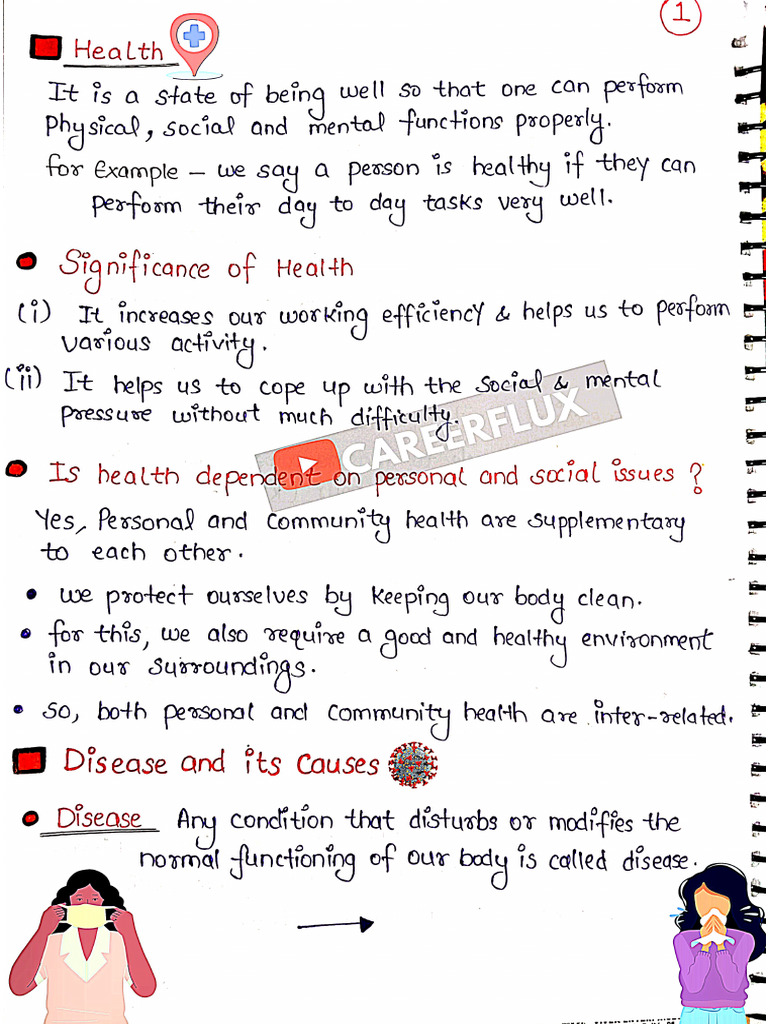 1
Health
It is a state of being well so that one can perform
Physical, social and mental functions properly.
for Example – we say a person is healthy if they can
perform their day to day tasks very well.
Significance of Health
(i) It increases our working efficiency & helps us to perform
various activity.
(ii) It helps us to cope up with the social & mental
pressure without much difficulty.
CAREERFLUX
Is health dependent on personal and social issues ?
Yes, Personal and community health are supplementary
to each other.
• we protect ourselves by keeping our body clean.
• for this, we also require a good and healthy environment
in our surroundings.
• so, both personal and community health are inter-related.
Disease and its causes
• Disease Any condition that disturbs or modifies the
normal functioning of our body is called disease.